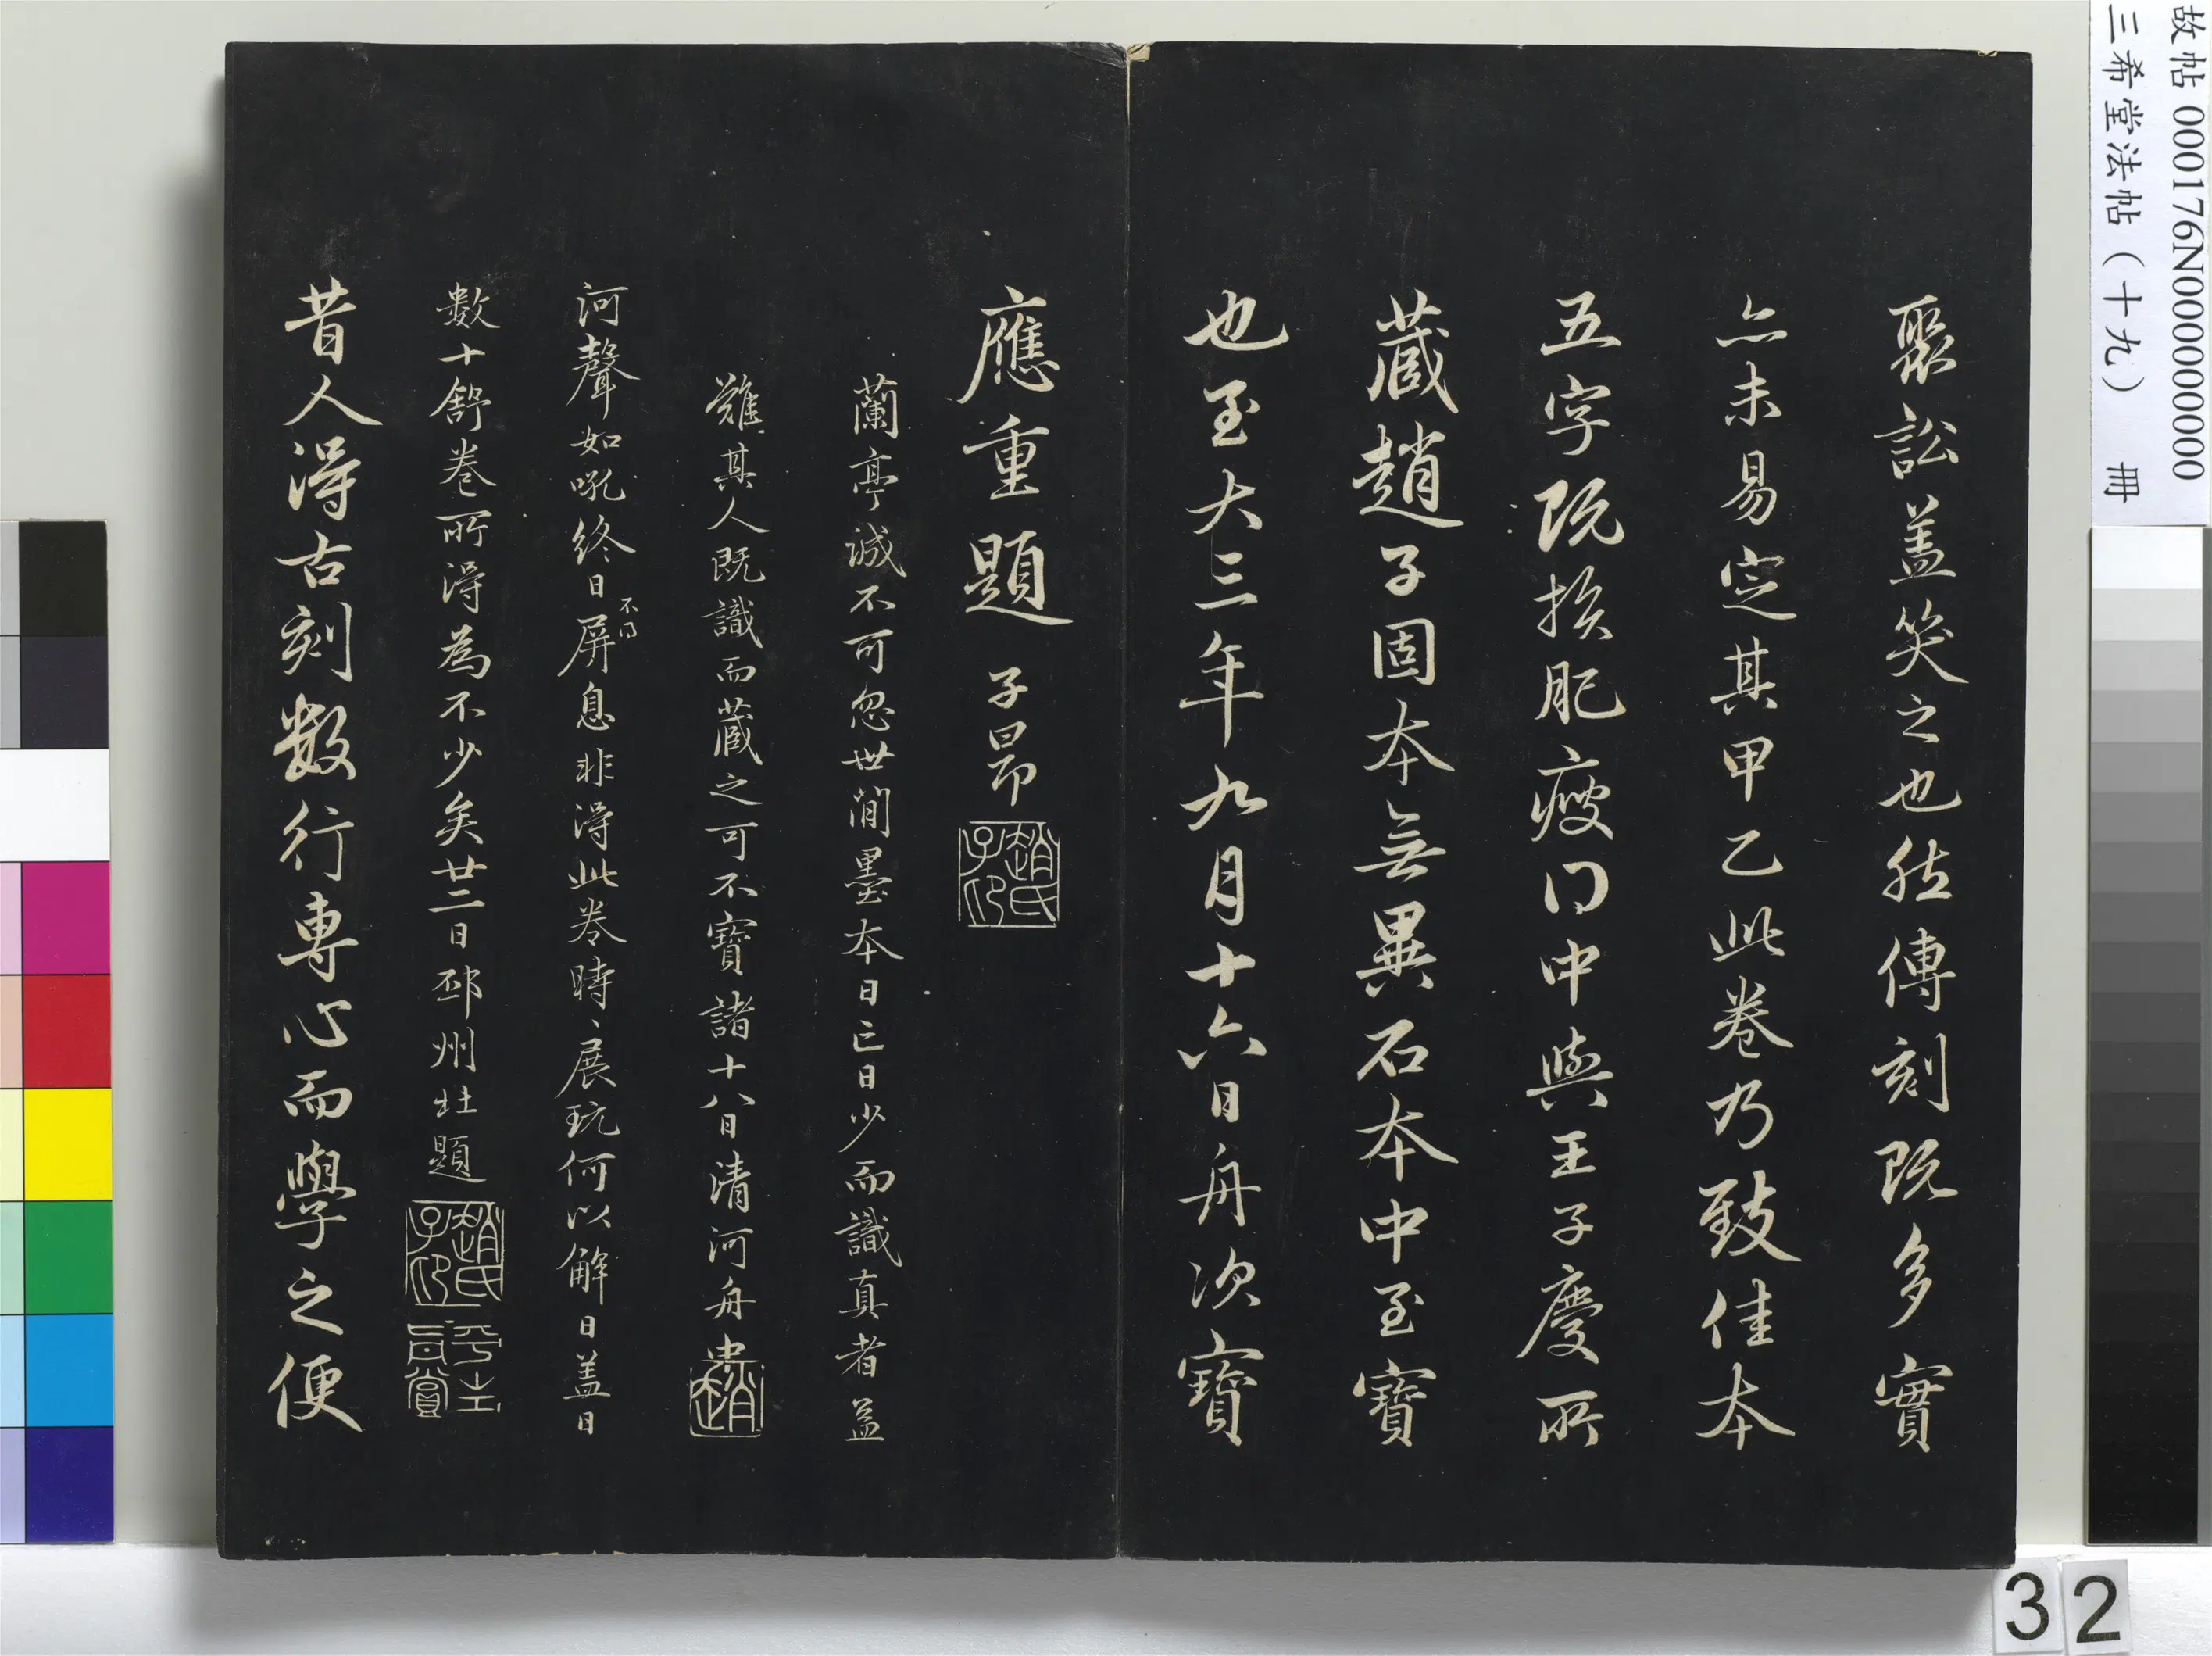 聚訟蓋笑之也然傳刻既多實
亦未易定其甲乙此卷乃致佳本
五字既損肥瘦得中與王子慶所
藏趙子固本無異石本中至寶
也至大三年九月十六日舟次寶
應重題 子昂
趙氏子印
蘭亭誠不可忽世間墨本日亡日少而識真者益
難其人既識而藏之可不寶諸十八日清河舟中
趙
河聲如吼終日屏息非得此卷時〻展玩何以解日蓋日
不得
數十舒卷所得為不少矣廿二日邳州北題
趙氏子印
昔人得古刻數行專心而學之便
故帖 000176N000000000
三希堂法帖(十九) 冊
32